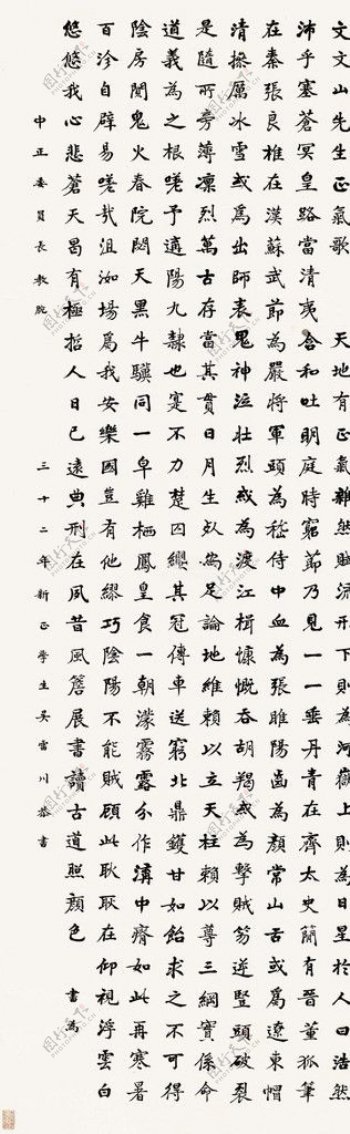 文文山先生正氣歌 天地有正氣雜然賦流形下則為河嶽上為日星於人曰浩然
沛乎塞蒼冥皇路當清夷含和吐明庭時窮節乃見一一垂丹青在齊太史簡有晉董狐筆
在秦張良椎在漢蘇武節為嚴將軍頭為嵇侍中血為張睢陽齒為顏常山舌或為遼東帽
清操厲冰雪或為出師表鬼神泣壯烈或為渡江楫慷慨吞胡羯或為擊賊笏逆豎頭破裂
是隨所旁薄凜烈萬古存當其貫日月生死安足論地維賴以立天柱賴以尊三綱實係命
道義為之根嗟予遘陽九隸也寔不力楚囚纓其冠傳車送窮北鼎鑊甘如飴求之不可得
陰房闃鬼火春院閟天黑牛驥同一皁雞棲鳳皇食一朝濛霧露分作溝中瘠如此再寒暑
百沴自辟易嗟哉沮洳場為我安樂國豈有他繆巧陰陽不能賊顧此耿耿在仰視浮雲白
悠悠我心悲蒼天曷有極哲人日已遠典刑在夙昔風簷展書讀古道照顏色 書為
中正委員長教 三十二年新正學生吳雷川恭書